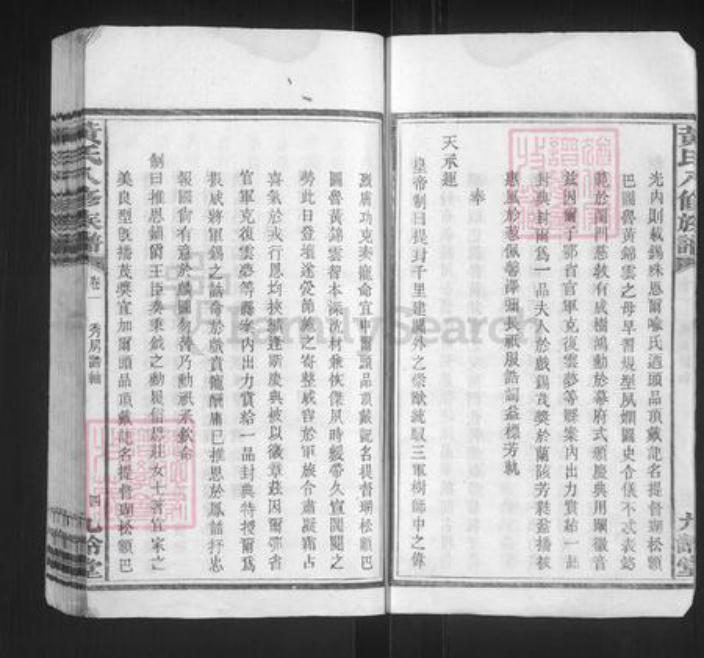 黃氏八修族譜
九誥堂
先內則載錫殊恩爾喻氏迺頭品頂戴記名提督瑚松額
巴圖魯黃錦雲之母早習規型夙嫻圖史令儀不忒表懿
範於閨門慈教有成樹鴻勳於幕府式頒慶典用闡徽音
茲因爾子鄂省官軍克復雲夢等縣案內出力賞給一品
封典封爾為一品夫人於戲錫茂獎於蘭陔芳鞋益播被
惠風於 佩馨澤彌長祇服誥詞益標芳軌
奉
天承運
皇帝制曰提封千里建 外之榮猷統馭三軍樹師中之偉
烈膚功克奏寵命宜申爾頭品頂戴記名提督瑚松額巴
圖魯黃錦雲智本深沈材兼俠傑夙時緩帶久宣閫閾之
勞此日登壇遂受節旄之寄整威容於軍旅令肅凝霜占
喜氣於戎行恩均挾纊逢斯慶典被以徽章茲因爾鄂省
官軍克復雲夢等縣案內出力賞給一品封典特授爾為
振威將軍錫之誥命於戲賁龍酬庸已推恩於鳳誥抒忠
報國尚有意於麟圖勿替乃勳祇承欽命
制曰推恩錫爵王臣奏秉鉞之勳履信思莊女士著宜家之
美良型旣播茂獎宜加爾頭品頂戴記名提督瑚松額巴
黃氏八修族譜
卷一
秀房誥軸
四
九誥堂
FamilySearch